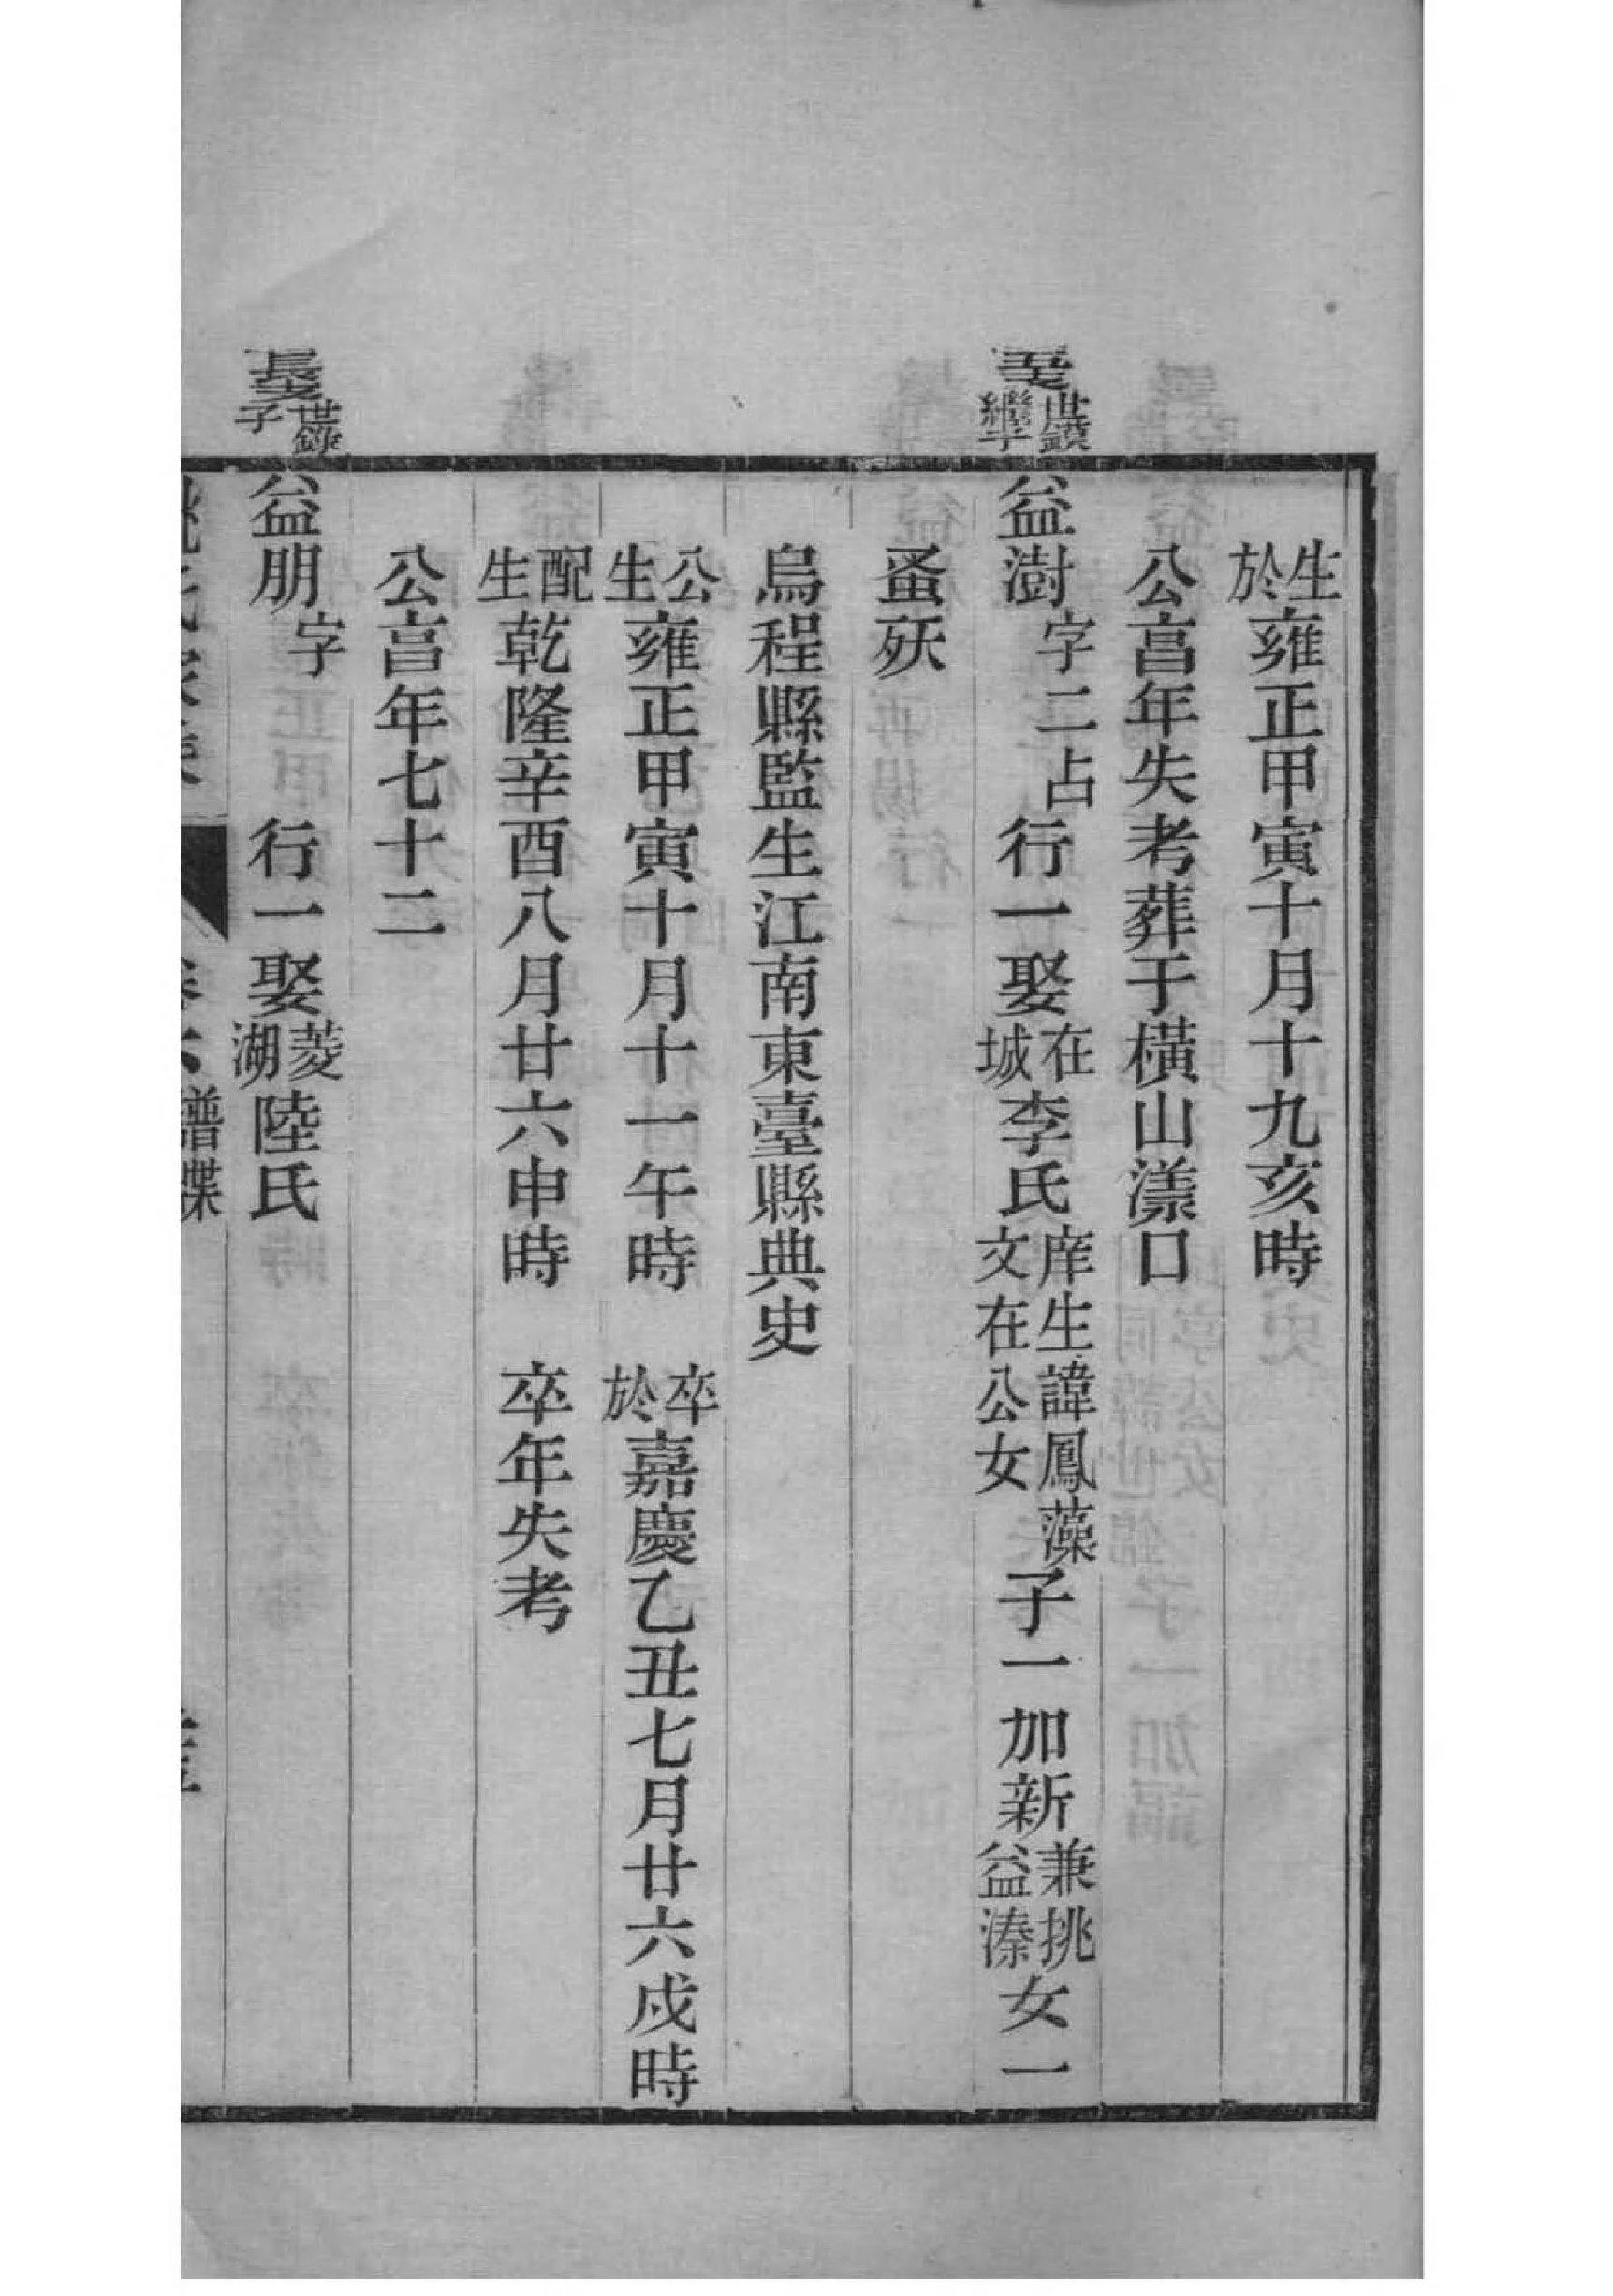 生於雍正甲寅十月十九亥時
公亯年失考葬于橫山漾口
繼子
益澍字二占行一娶在城李氏庠生諱鳳藻文在公女子一加新兼挑益溱女一
蚤殀
烏程縣監生江南東臺縣典史
公生雍正甲寅十月十一午時 卒於嘉慶乙丑七月廿六戌時
配生乾隆辛酉八月廿六申時 卒年失考
公亯年七十二
世錄子
益朋字 行一娶菱湖陸氏
譜牒